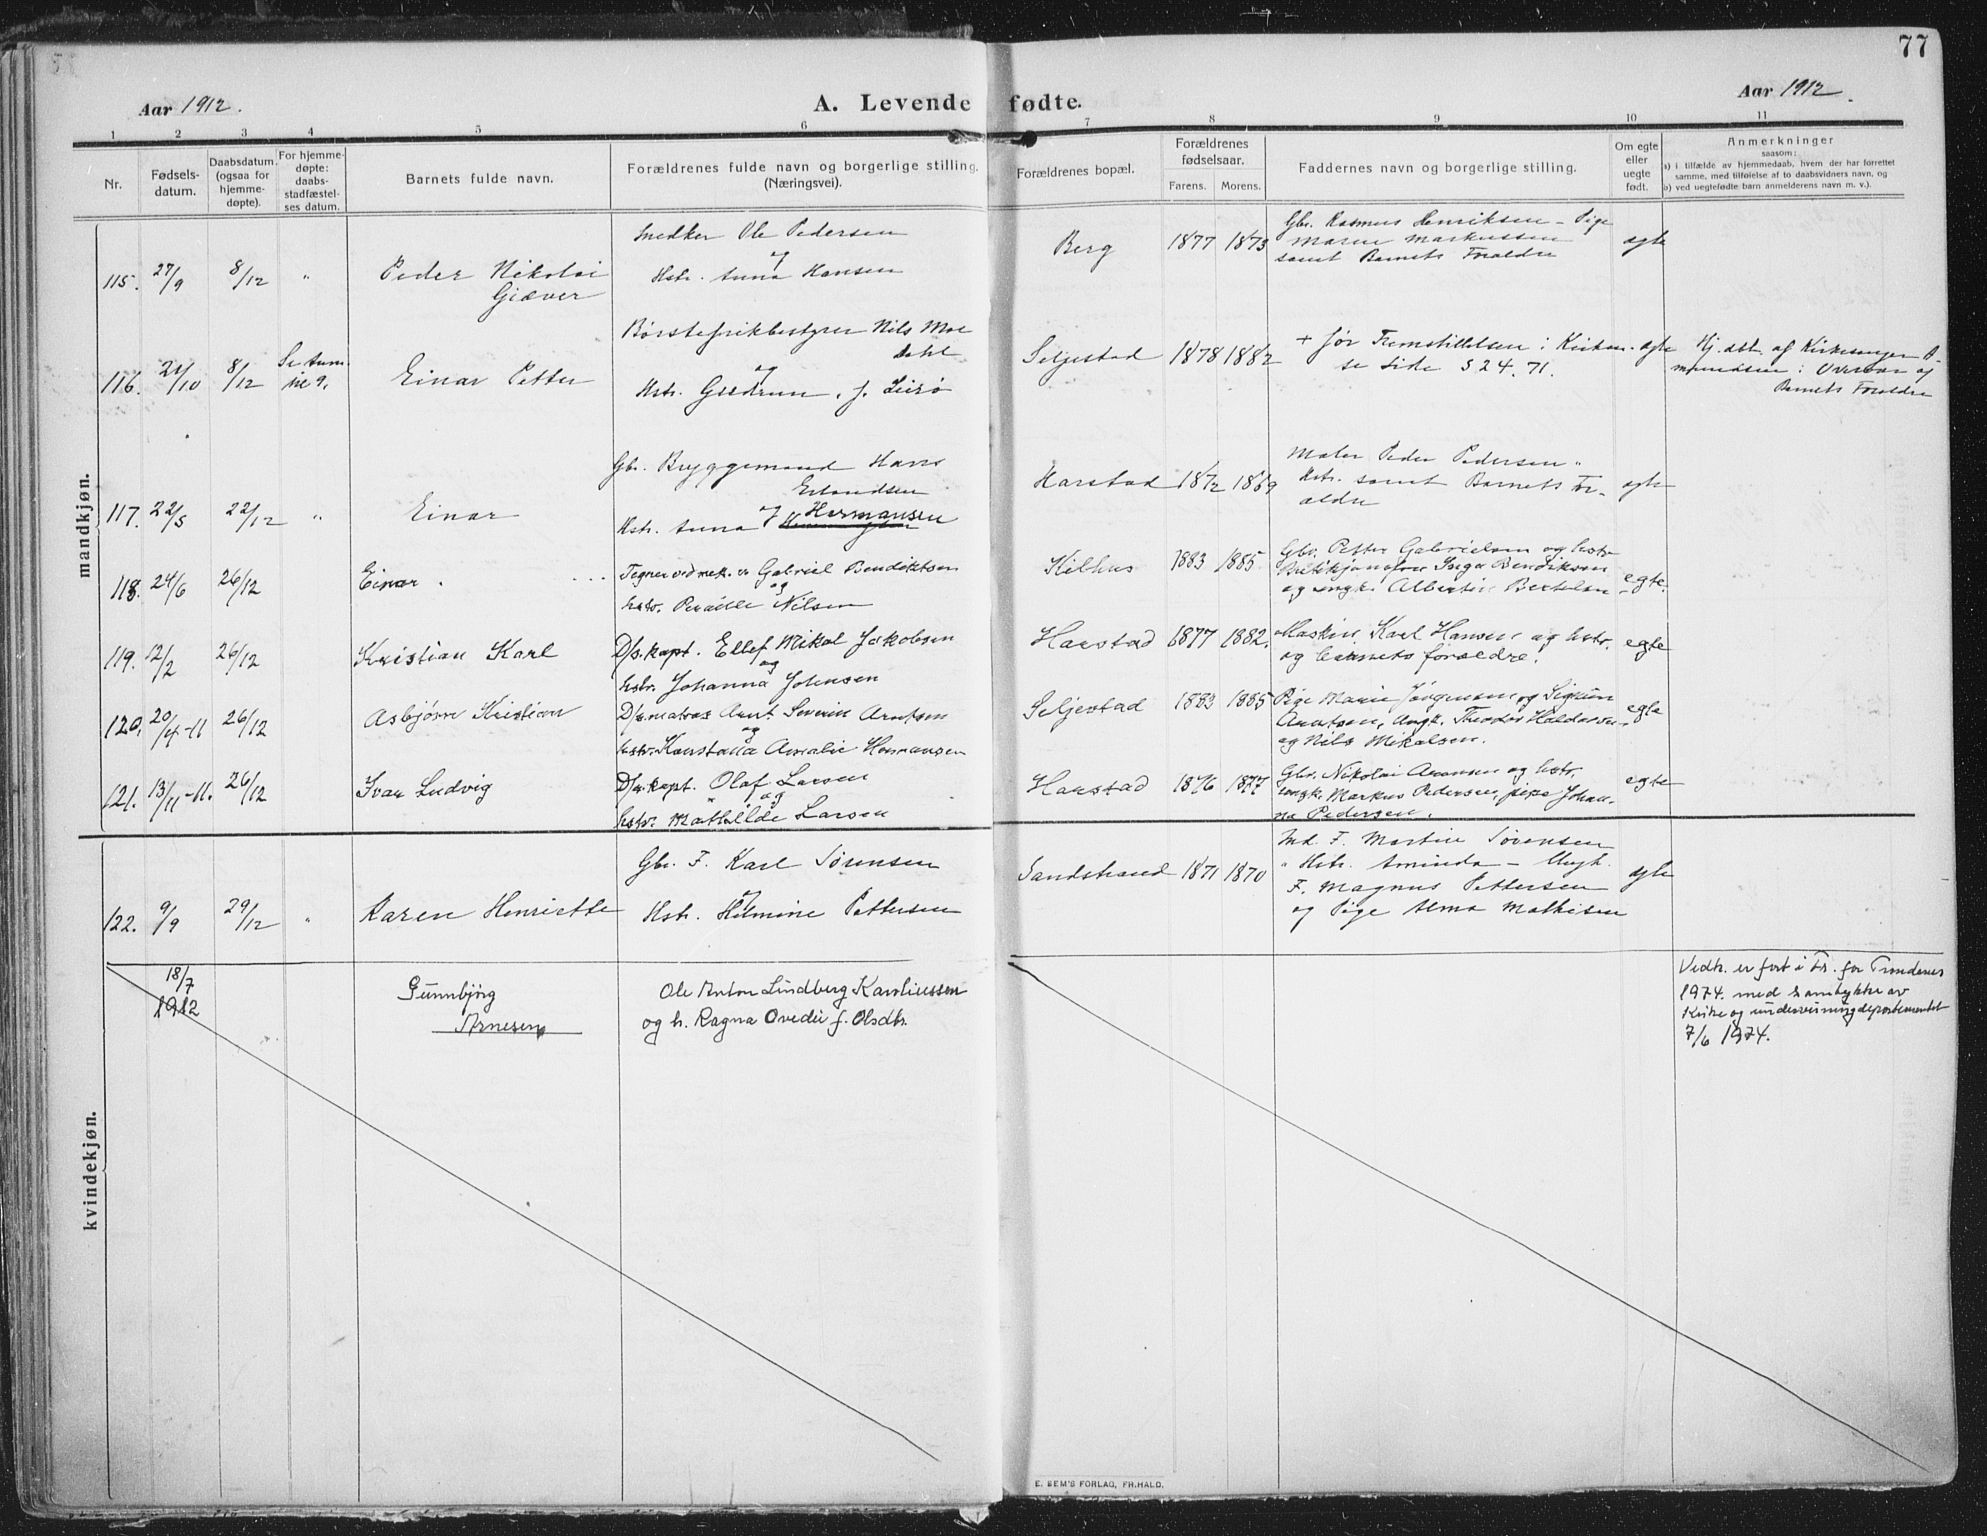 77
Aar 1912.
A. Levende fødte.
Aar 1912.
1 2 3 4 5 6 7 8 9 10 11
Nr.
Fødsels-
datum.
Daabsdatum.
(ogsaa for
hjemme-
døpte).
For hjemme-
døpte:
daabs-
stadfæstel-
ses datum.
Barnets fulde navn.
Forældrenes fulde navn og borgerlige stilling.
(Næringsvei).
Forældrenes bopæl.
Forældrenes
fødselsaar.
Farens. Morens.
Faddernes navn og borgerlige stilling.
Om egte
eller
uegte
født.
Anmerkninger
saasom:
a) i tilfælde av hjemmedaab, hvem der har forrettet
samme, med tilføielse af to daabsvidners navn, og
b) ved uegtefødte barn anmelderens navn m. v.).
mandkjøn.
115. 27/9 8/12 "
Peder Nikolai
Giæver
Snedker Ole Pedersen
og
Hstr. Anna Hansen
Berg 1877 1873
Gbr. Rasmus Henriksen - Pige
Maren Markussen
samt Barnets Forældre
egte
116. 21/10 8/12
Se Anm
Einar Petter
Nils Moe
Dahl
og
Hstr. Gudrun, f. Leirö
Seljestad 1878 1882
+ før Fremstillelsen i Kirken.
se Side 324. 71.
egte
Hj.dbt. af Kirkesanger
i Overvær af
Barnets Forældre
117. 22/5 22/12 "
Einar
Gbr. Bryggemand Hans
Erlandsen
og
Hstr. Anna Hermansen
Harstad 1872 1869
Maler Peder Pedersen "
Hstr. samt Barnets For-
ældre
egte
118. 24/6 26/12
Einar.
Gabriel Bendiktsen
og
hstr. Pernille Nilsen
Kilhus 1883 1885
Gbr. Petter Gabrielsen og hstr.
Butikjomfru Inga Bendiksen
og ungk. Albertin Bertelsen
egte.
119. 12/2 26/12
Kristian Karl
D/s.kapt. Ellef Mikal Jakobsen
og
hstr. Johanna Johensen
Harstad 1877 1882.
Maskin. Karl Hansen og hstr.
og barnets forældre.
egte
120. 20/4-11 26/12
Asbjørn Kristian
D/s.matros Arnt Severin Arntsen
og
hstr. Konstana Amalie Hermansen
Seljestad 1883 1885
Pige Marie Jörgensen og Sigrun
Arntsen, ungk. Theodor Haldorsen
og Nils Mikalsen.
egte
121. 13/11-11. 26/12
Ivar Ludvig
D/s.kapt. Olaf Larsen
og
hstr. Mathilde Larsen
Harstad 1876 1877
Gbr. Nikolai Aronsen og hstr.
ungk. Markus Pedersen, pige Johan-
na Pedersen.
egte
kvindekjøn.
122. 9/9 29/12 "
Karen Henriette
Gbr. F. Karl Sørensen
og
Hstr. Hilmine Pettersen
Sandstrand 1871 1870
F. Martin Sørensen
" Hstr. Aminda - Ungk.
F. Magnus Pettersen
og Pige Alma Mathisen
egte
18/7
1912
Gunnbjörg
Arnesen
Ole Anton Lindberg Karoliussen
og h. Ragna Ovedie f. Olsdtr.
Vedk. er ført i Fr. for Trondenes
1974 med samtykke av
Kirke og undervisningsdepartementet
7/6 1974.
E. SEM'S FORLAG, FR.HALD.